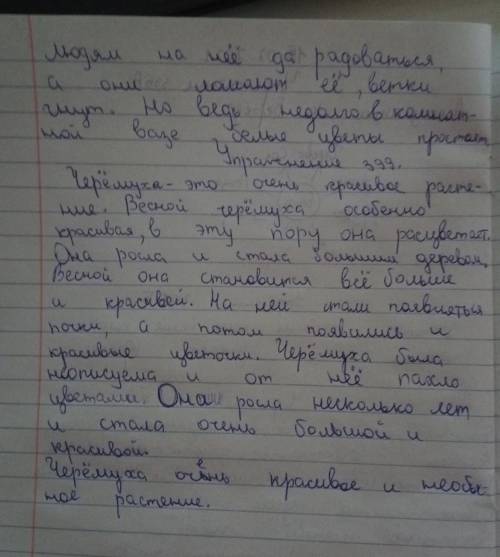 людям на неё да радоваться,
а они ломают её, ветки
гнут. Но ведь недолго в комнат-
ной вазе белые цветы простоят.
Упражнение 399.
Черёмуха - это очень красивое расте-
ние. Весной черёмуха особенно
красивая, в эту пору она расцветает.
Она росла и стала большим деревом.
Весной она становится всё больше
и красивей. На ней стали появляться
почки, а потом появились и
красивые цветочки. Черёмуха была
неописуема и от неё пахло
цветами. Она росла несколько лет
и стала очень большой и
красивой.
Черёмуха очень красивое и необы-
ное растение.